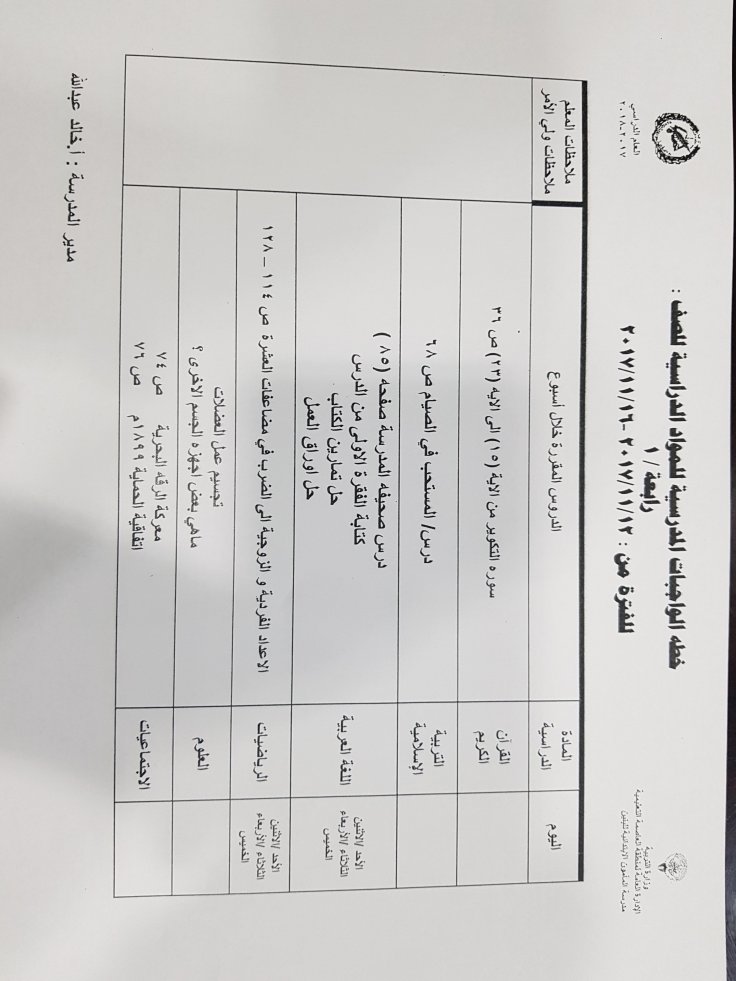 وزارة التربية
الإدارة العامة لمنطقة العاصمة التعليمية
مدرسة المأمون الابتدائية للبنين
العام الدراسي
٢٠١٧-٢٠١٨
خطه الواجبات المدرسية للمواد الدراسية للصف :
رابعة / ١
للفترة من : ٢٠١٧/١١/١٢ -٢٠١٧/١١/١٦
اليوم
المادة الدراسية
الدروس المقررة خلال أسبوع
ملاحظات المعلم
ملاحظات ولي الأمر
القرآن الكريم
سوره التكوير من الاية (١٥) الى الاية (٢٣) ص ٣٦
التربية الإسلامية
درس/ المستحب في الصيام ص ٦٨
الأحد /الاثنين
الثلاثاء /الأربعاء
الخميس
اللغة العربية
درس صحيفه المدرسة صفحه (٨٥)
كتابة الفقرة الاولى من الدرس
حل تمارين الكتاب
حل اوراق العمل
الأحد /الاثنين
الثلاثاء /الأربعاء
الخميس
الرياضيات
الاعداد الفردية و الزوجية الى الضرب في مضاعفات العشرة ص ١١٤ – ١٢٨
العلوم
تجسيم عمل العضلات
ماهي بعض اجهزه الجسم الاخرى ؟
الاجتماعيات
معركة الرقه البحرية ص ٧٤
اتفاقية الحماية ١٨٩٩م ص ٧٦
مدير المدرسة : أ.خالد عبدالله